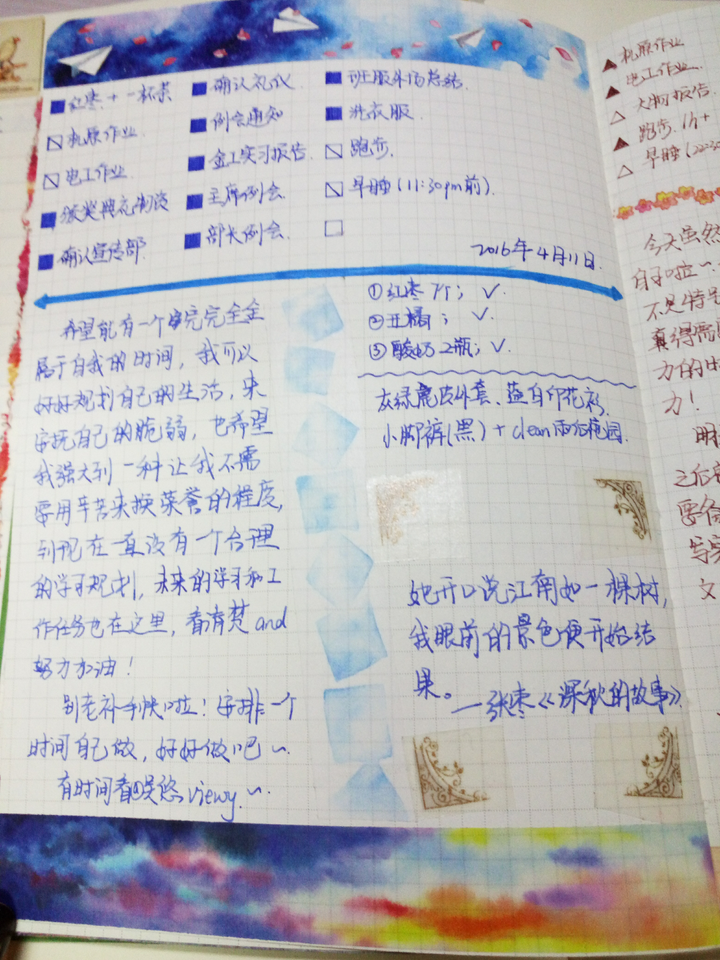 红枣+一杯茶
机原作业
电工作业
颁奖典礼彻谈
确认宣传部
确认礼仪
例会通知
金工实习报告
主席例会
部长例会
班服市场总结
洗衣服
跑步.
早睡(11:30pm前).
2016年4月11日.
希望能有一个完完全全
属于自我的时间，我可以
好好规划自己的生活，来
安抚自己的脆弱，也希望
我强大到一种让我不需
要用辛苦来换荣誉的程度，
到现在一直没有一个合理
的学习规划，未来的学习和工
作任务也在这里，看清楚and
努力加油！
别老补手帐啦！安排一个
时间自己做，好好做吧～
有时间看暖悠viewy.～
①红枣7个；✓.
②丑橘；✓.
③酸奶2瓶；✓.
灰绿鹿皮外套、蓝白印花衫
小脚裤(黑)+clean雨后花园.
她开口说江南如一棵树，
我眼前的景色便开始结
果。
—张枣《深秋的故事》
机原作业
电工作业.
大物报告
跑步.
早睡(22:30
今天虽然
自习啦～
不是特别
真得需
力的时
力！
明
之后
要备
写实
文